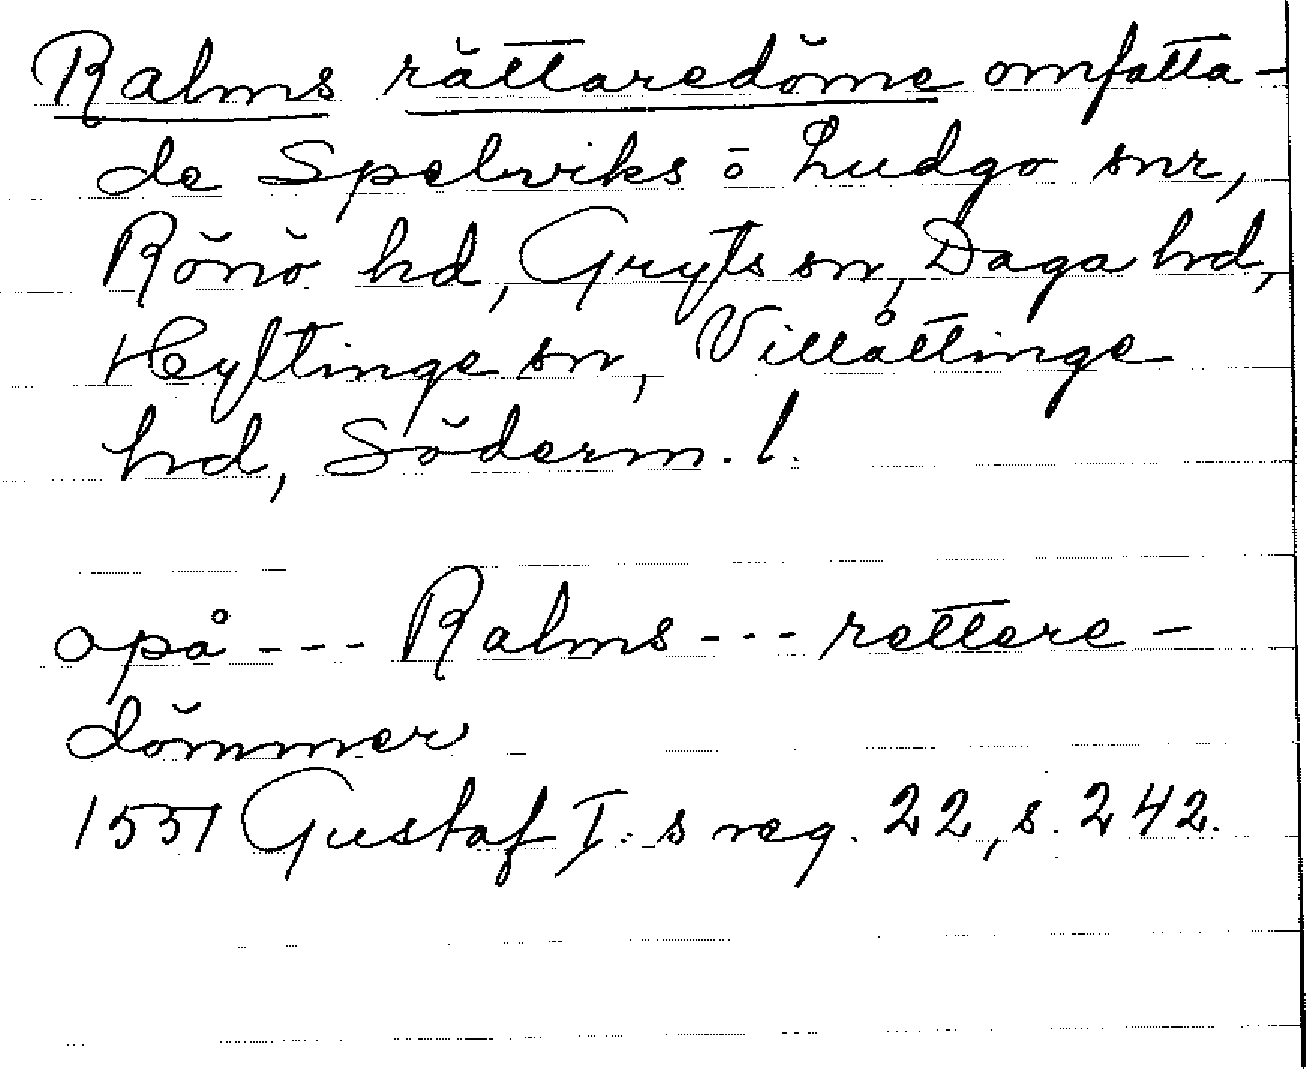 Ralms rättaredöme omfatta-
de Spelviks ō Ludgo snr,
Rönö hd, Gryts sn, Daga hd,
Hyltinge sn, Villåttinge
hd, Söderm. l.
opå --- Ralms --- rettere-
dömmer
1551 Gustaf I:s reg. 22, s. 242.